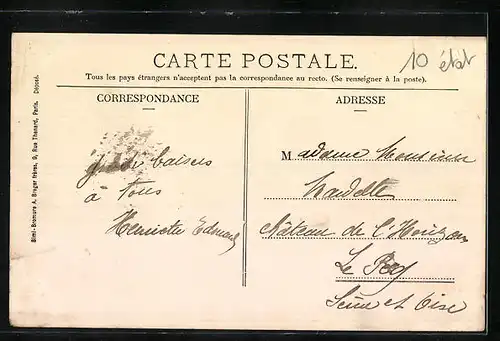 CARTE POSTALE.
10 état
Tous les pays étrangers n'acceptent pas la correspondance au recto. (Se renseigner à la poste).
CORRESPONDANCE
ADRESSE
Simi-Bromure A. Breger frères, 9, Rue Thénard, Paris. Déposé.
baisers
à tous
Henriette Edouard
Madame Monsieur
Château de l'Horizon
Le
Seine et Oise